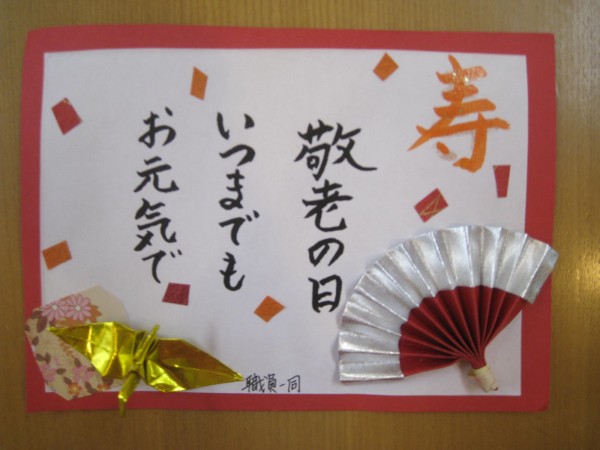 寿
敬老の日
いつまでも
お元気で
職員一同